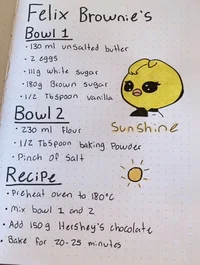 Felix Brownie's
Bowl 1
• 130 ml unsalted butter
• 2 eggs
• 111g white sugar
• 180g Brown sugar
• 1/2 Tbspoon vanilla
Bowl 2
• 230 ml Flour
• 1/2 Tbspoon baking Powder
• Pinch of Salt
Sunshine
Recipe
• Preheat oven to 180°C
• Mix bowl 1 and 2
• Add 150g Hershey's chocolate
• Bake for 20-25 minutes